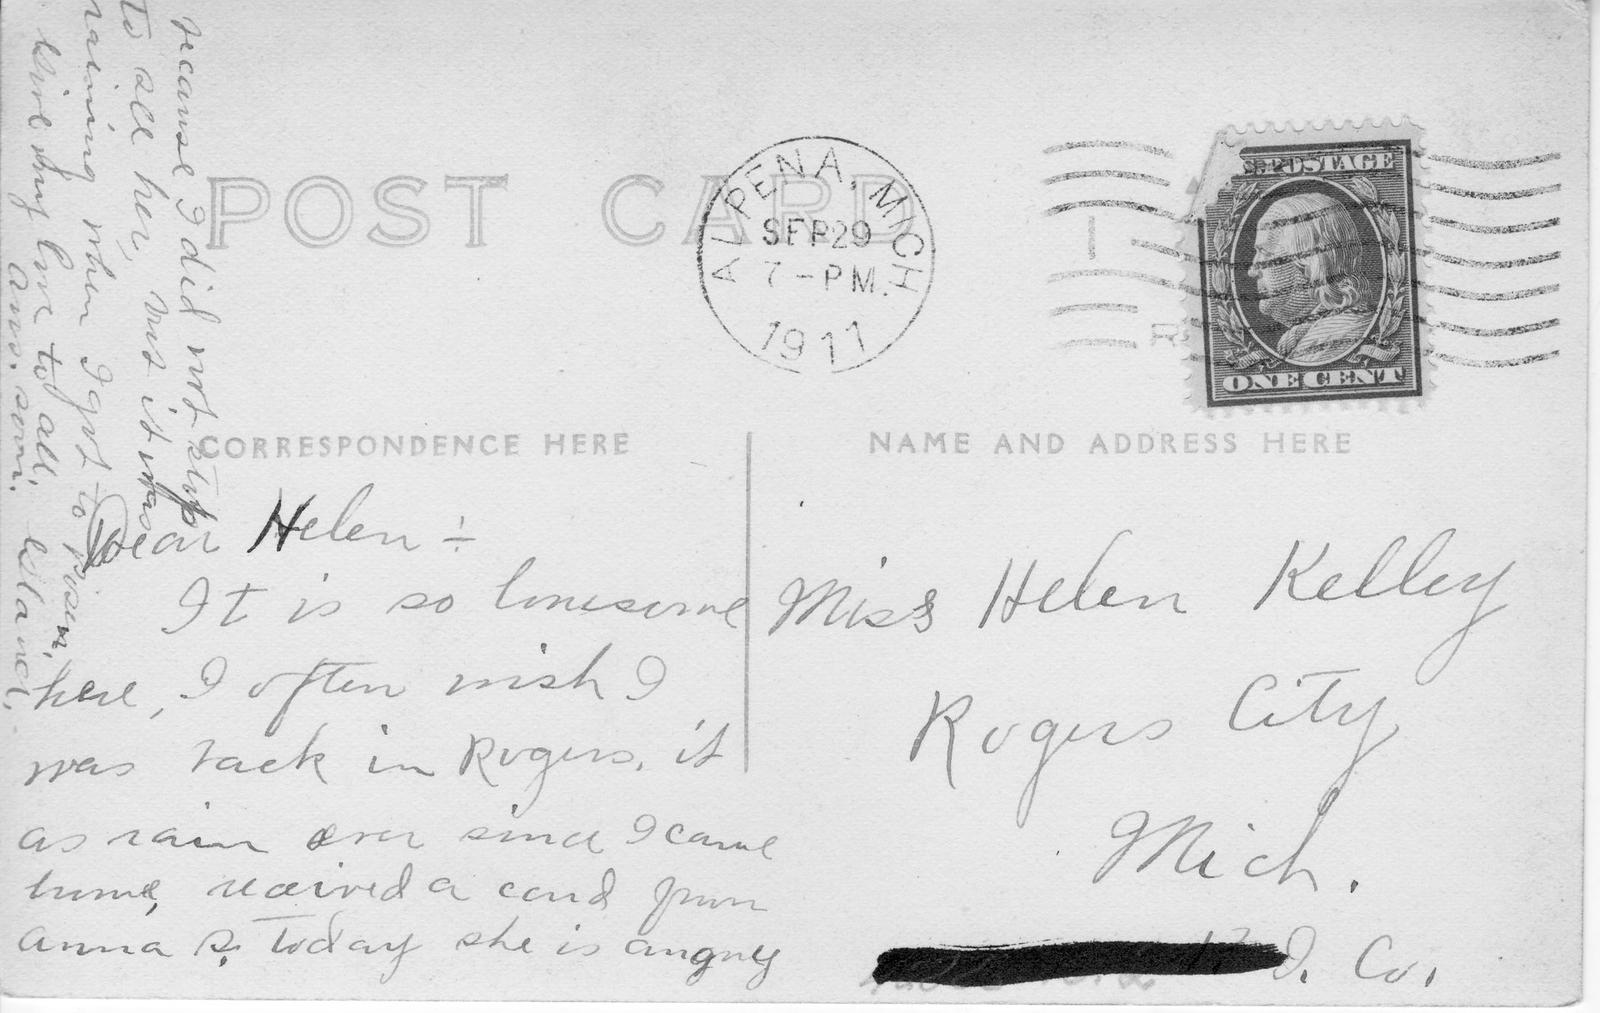 POST CARD
ALPENA, MICH
SEP 29
7-PM.
1911
U.S. POSTAGE
ONE CENT
CORRESPONDENCE HERE
NAME AND ADDRESS HERE
Dear Helen ÷
It is so lonesome
here, I often wish I
was back in Rogers, it
as rain ever since I came
home, received a card from
Anna S. today she is angrey
because I did not stop
to see her, but it was
raining when I got to Posen.
Give my love to all.
Ans. soon.
Miss Helen Kelley
Rogers City
Mich.
P. I. Co.